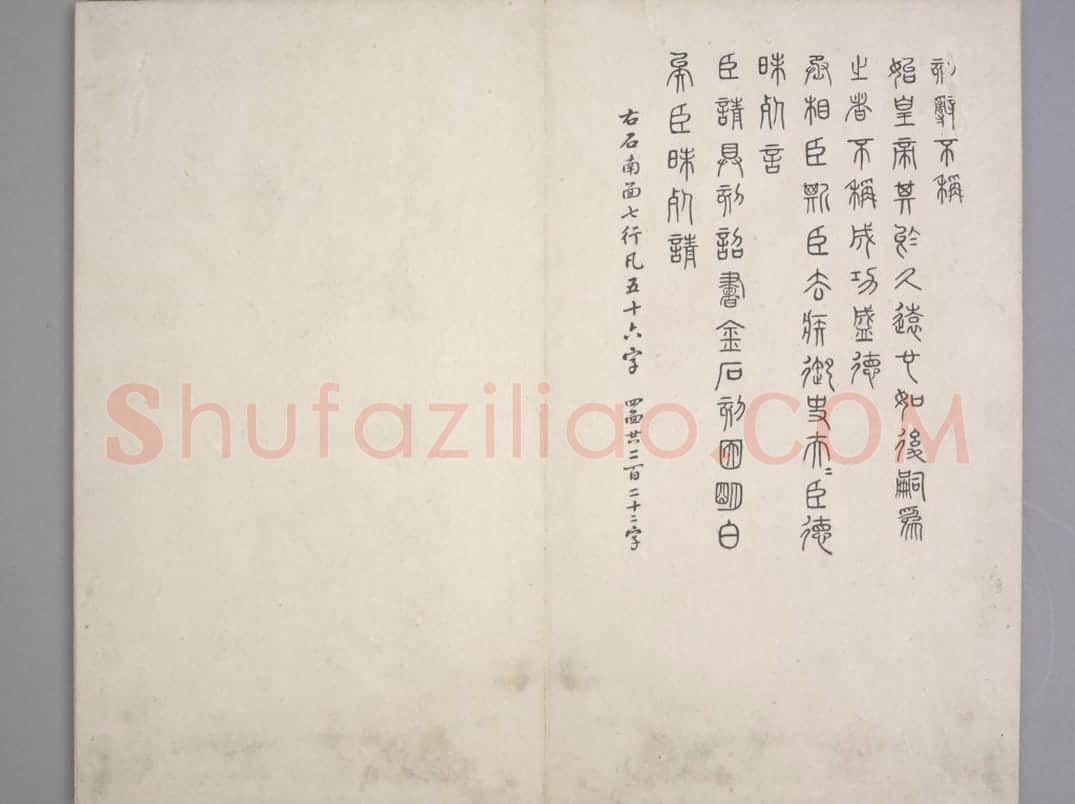 刻辭不稱
始皇帝其於久遠也如後嗣為
之者不稱成功盛德
丞相臣斯臣去疾御史夫〻臣德
昧死言
臣請具刻詔書金石刻因明白
矣臣昧死請
右石南面七行凡五十六字 四面共二百二十二字
Shufaziliao.COM